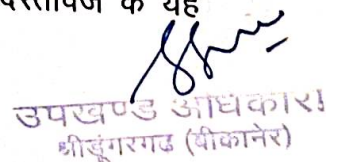 दस्तावेज के यह
उपखण्ड अधिकारी
श्रीडूंगरगढ (बीकानेर)